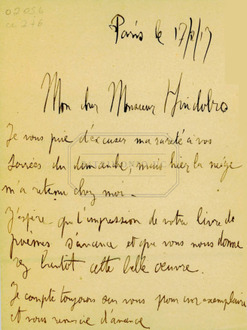 Paris le 17/1/17
Mon cher Monsieur Huidobro
Je vous prie d'excuser ma rareté à vos
soirées du dimanche, mais hier la neige
m'a retenu chez moi.
J'espère que l'impression de votre livre de
poemes s'avance et que vous nous donne
rez bientot cette belle œuvre.
Je compte toujours sur vous pour un exemplaire
et vous remercie d'avance